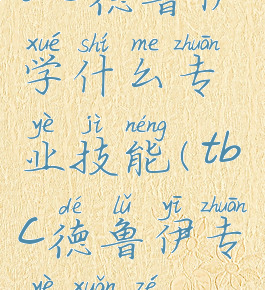 德鲁伊
xué shí me zhuān
学什么专
yè jì néng
业技能(tb
dé lǔ yī zhuān
c德鲁伊专
yè xuǎn zé